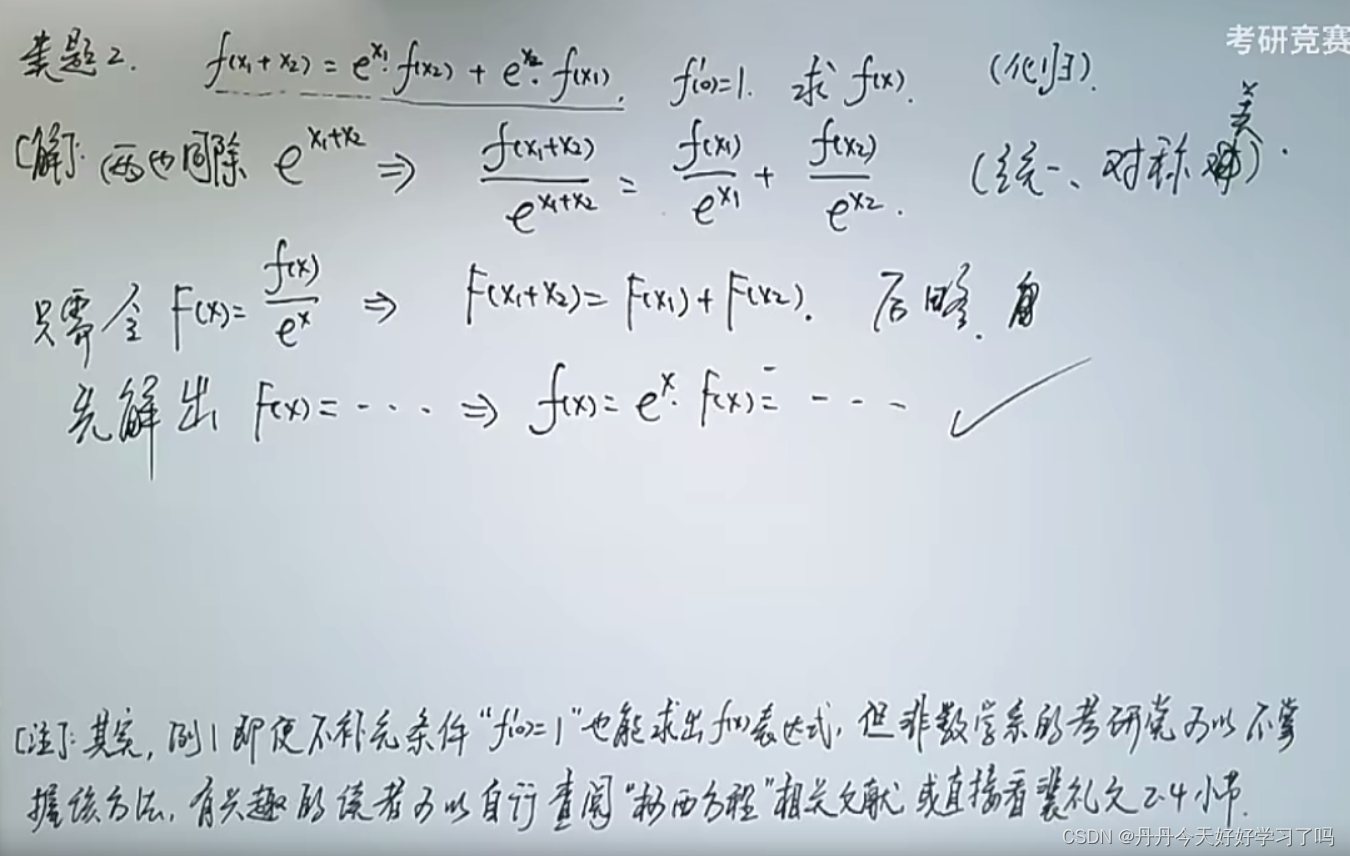 考研竞赛
类题2. f(x₁+x₂) = e^x₁·f(x₂) + e^x₂·f(x₁), f'(0)=1. 求 f(x). (化归).
[解]: 两边同除 e^(x₁+x₂) ⇒ f(x₁+x₂)/e^(x₁+x₂) = f(x₁)/e^x₁ + f(x₂)/e^x₂. (统一、对称美).
只需令 F(x) = f(x)/e^x ⇒ F(x₁+x₂) = F(x₁) + F(x₂). 后略.
先解出 F(x) = ···· ⇒ f(x) = e^x·F(x) = --- ✓
[注]: 其实, 例1即便不补充条件“f'(0)=1”也能求出f(x)表达式, 但非数学系的考研党可以不掌
握该方法, 有兴趣的读者可以自行查阅“柯西方程”相关文献或直接看裴礼文2.4小节.
CSDN @丹丹今天好好学习了吗